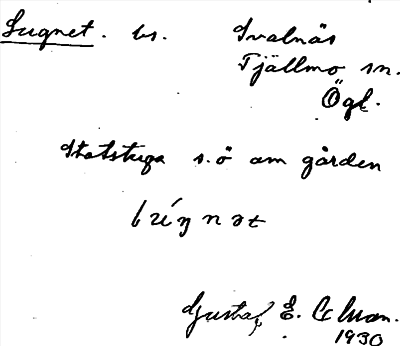 Lugnet. bs. Svalnäs
Tjällmo sn.
Ögl.
Statstuga s.ö om gården
Gustaf E.
1930